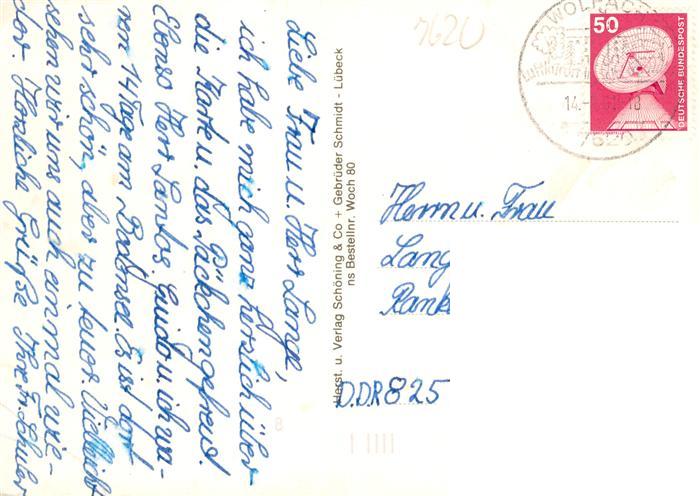 Liebe Frau u. Herr Lange,
ich habe mich ganz herzlich über
die Karte u. das Päckchen gefreut.
Ebenso Herr Lantos. Guido u. ich wa-
ren 14 Tage am Bodensee. Es ist dort
sehr schön, aber zu teuer. Vielleicht
sehen wir uns auch einmal wie-
der. Herzliche Grüße Ihre Fr. Schuler
Herst. u. Verlag Schöning & Co + Gebrüder Schmidt - Lübeck
ns Bestellnr. Woch 80
7620
WOLFACH
Luftkurort
7620
50
DEUTSCHE BUNDESPOST
Herrn u. Frau
Lang
Rank
DDR 825
8